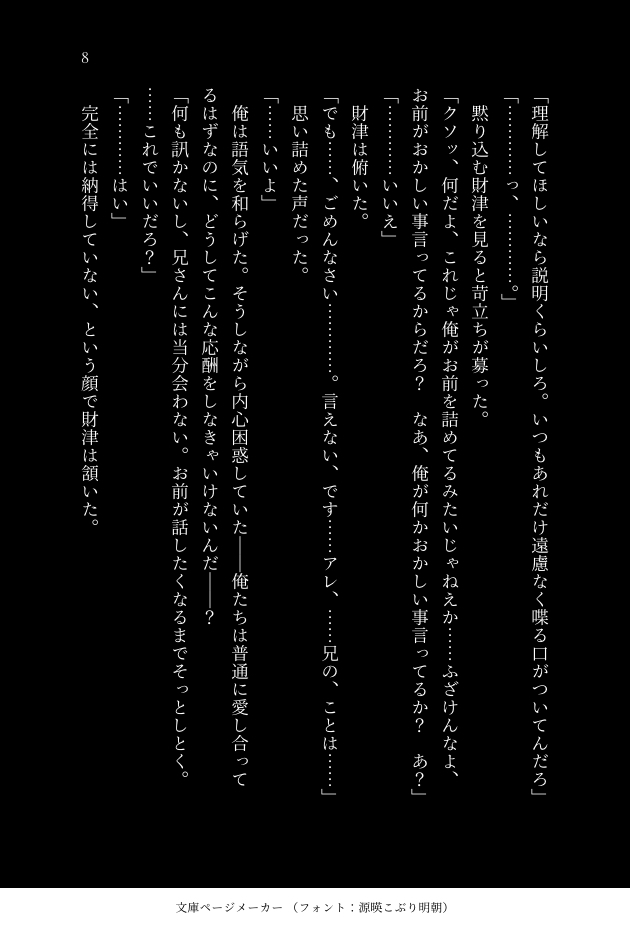 8
「理解してほしいなら説明くらいしろ。いつもあれだけ遠慮なく喋る口がついてんだろ」
「…………っ、…………。」
　黙り込む財津を見ると苛立ちが募った。
「クソッ、何だよ、これじゃ俺がお前を詰めてるみたいじゃねえか……ふざけんなよ、
お前がおかしい事言ってるからだろ？　なあ、俺が何かおかしい事言ってるか？　あ？」
「…………いいえ」
　財津は俯いた。
「でも……、ごめんなさい…………。言えない、です……アレ、……兄の、ことは……」
　思い詰めた声だった。
「……いいよ」
　俺は語気を和らげた。そうしながら内心困惑していた――俺たちは普通に愛し合って
るはずなのに、どうしてこんな応酬をしなきゃいけないんだ――？
「何も訊かないし、兄さんには当分会わない。お前が話したくなるまでそっとしとく。
……これでいいだろ？」
「…………はい」
　完全には納得していない、という顔で財津は頷いた。
文庫ページメーカー （フォント：源暎こぶり明朝）